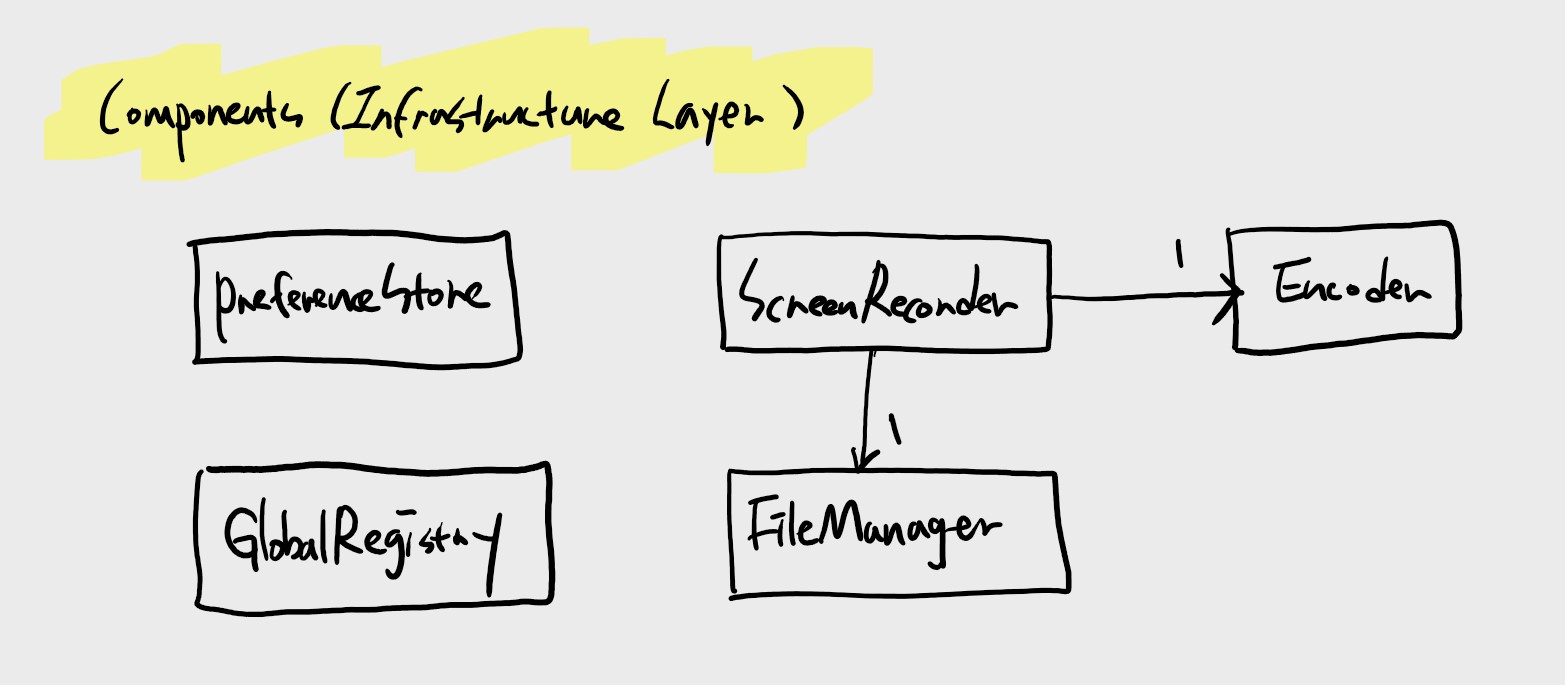 Components (Infrastructure Layer)
PreferenceStore
ScreenRecorder
1
Encoder
1
GlobalRegistry
FileManager